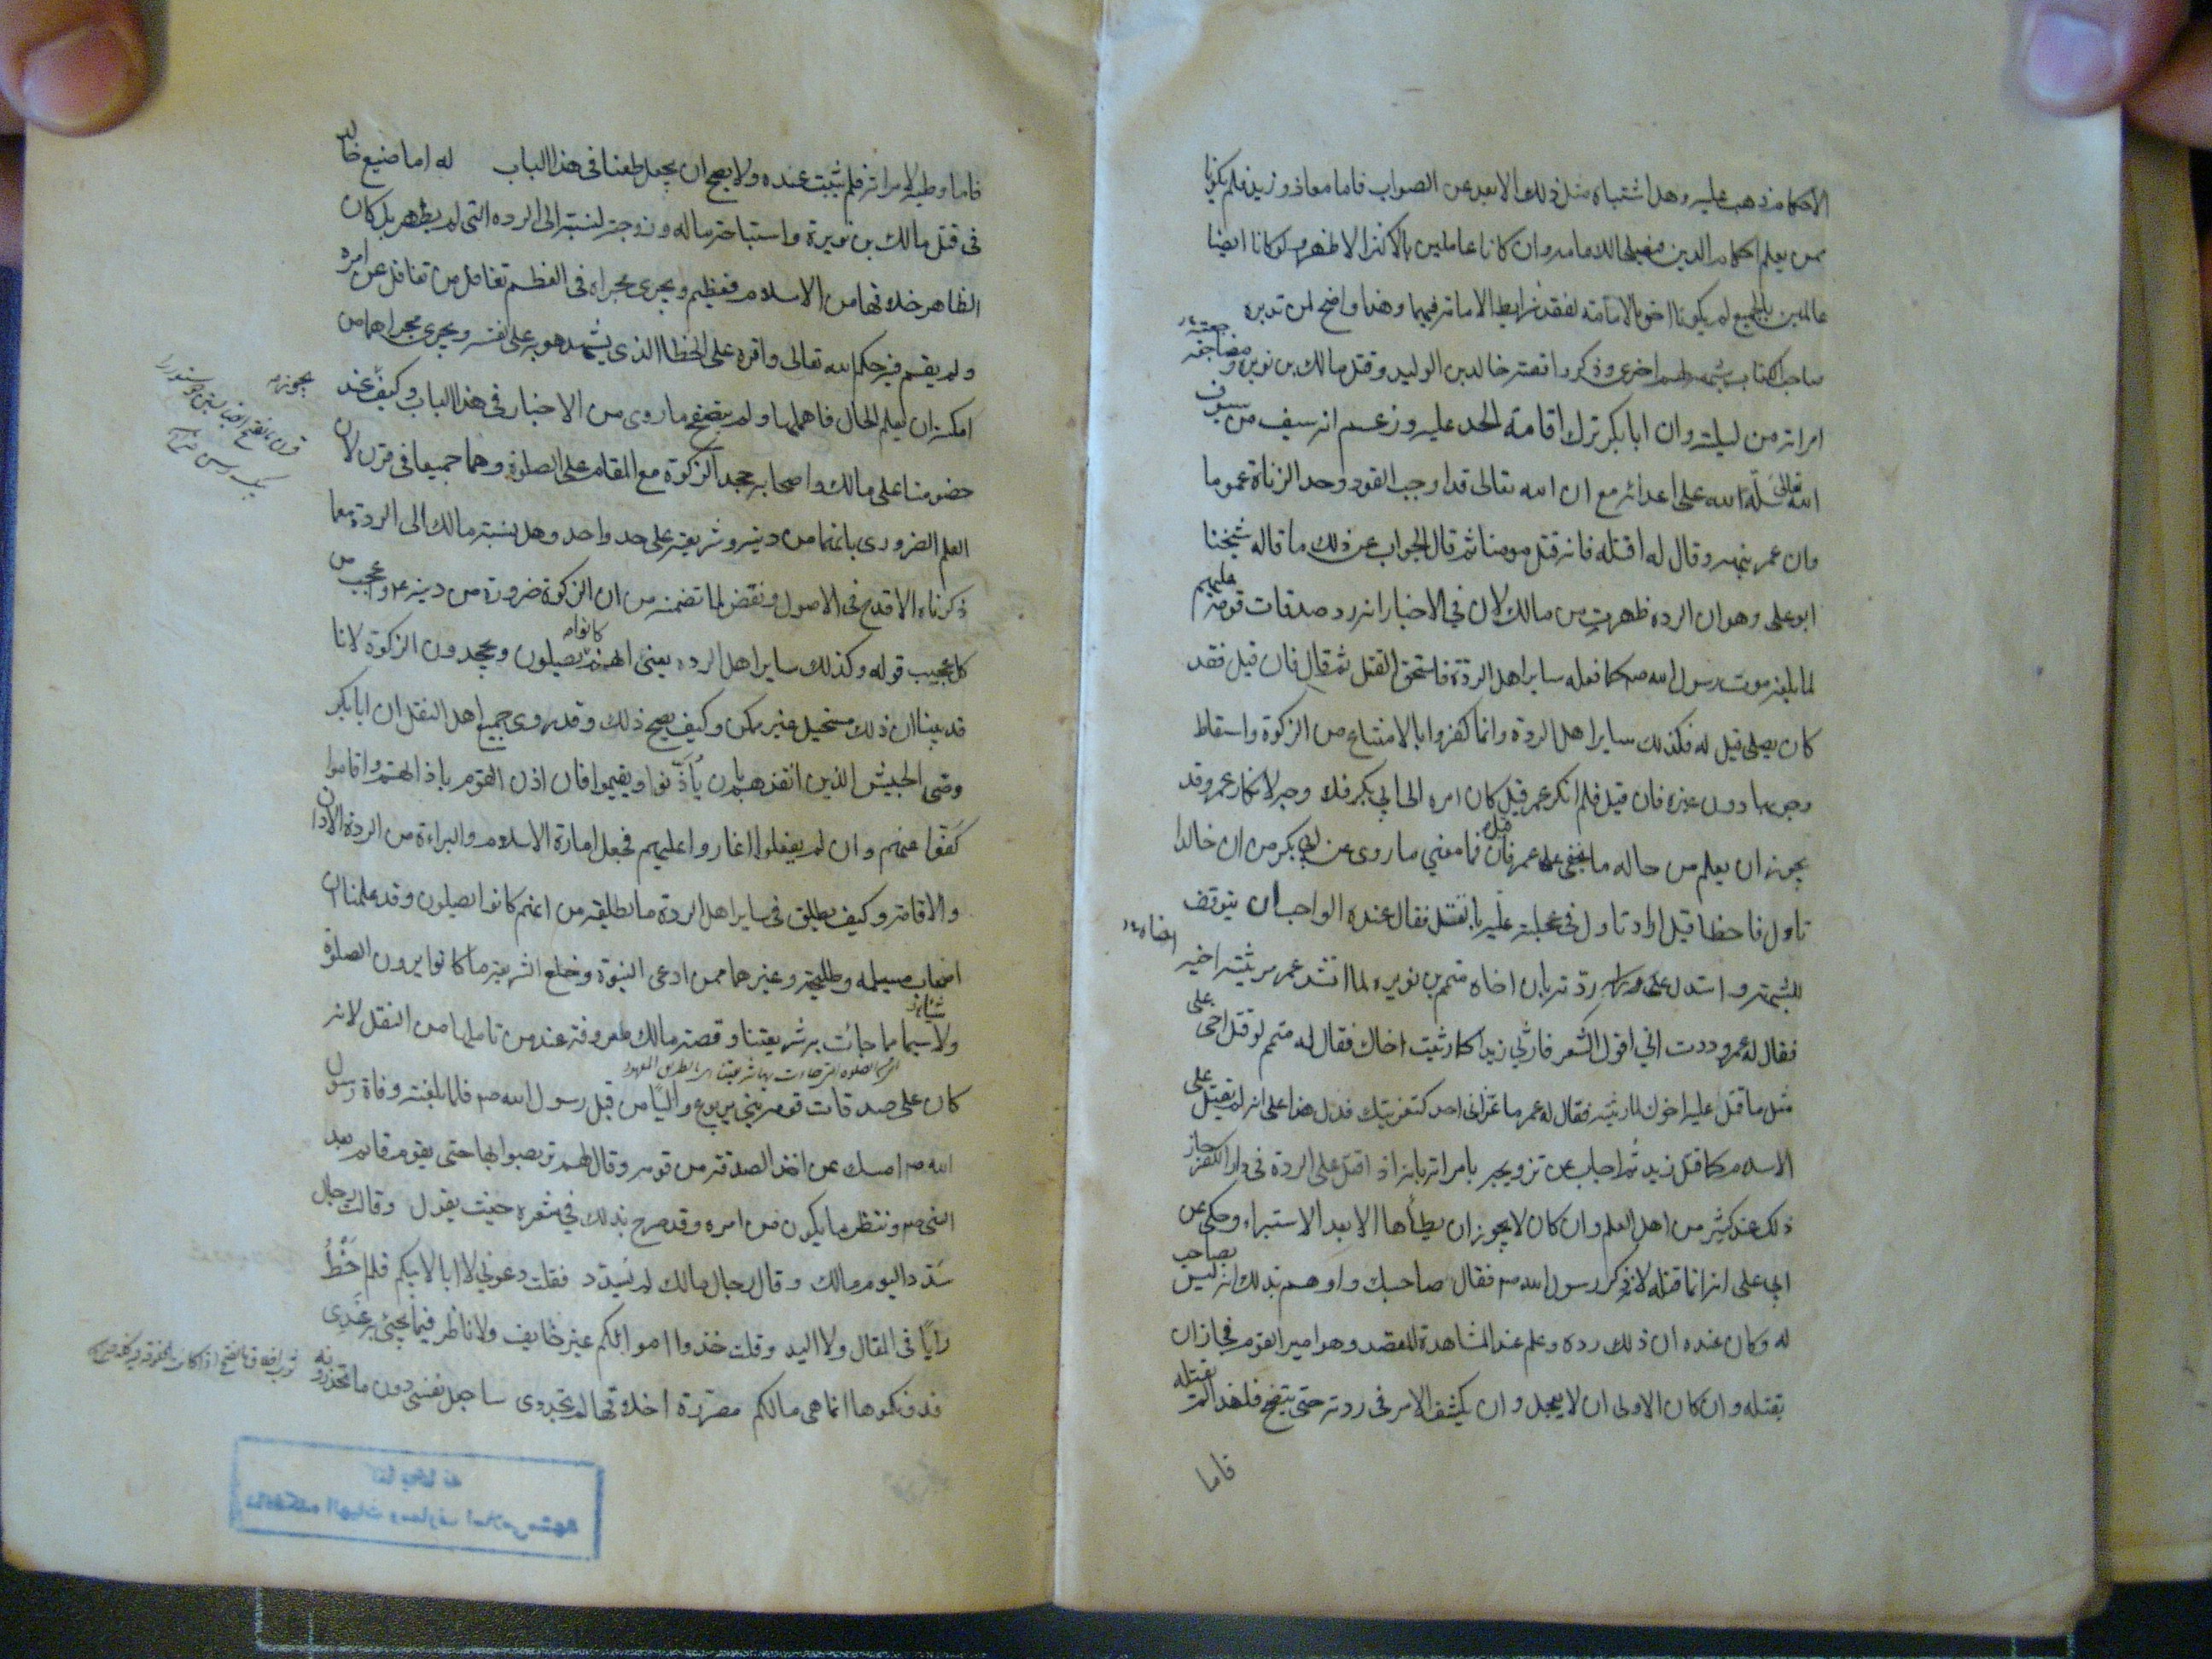 الاحكام ذهب عليه وهل اشتباه مثل ذلك الا بعد عن الصواب فاما معاذ وزيد فلم يكونا
ممن يعلم احكام الدين وان كانا عاملين بالاكثر الاظهر ولو كانا ايضا
عالمين بالجميع لم يكونا احق بالامامة لفقد شرايط الامامة فيهما وهذا واضح لمن تدبره
صاحب الكتاب شبهة لهم اخرى وذكر واقعة خالد بن الوليد وقتل مالك بن نويرة ومضاجعته
امراته من ليلته وان ابابكر ترك اقامة الحد عليه وزعم انه سيف من سيوف
الله سله الله تعالى على اعدائه مع ان الله تعالى قد اوجب القود وحد الزناة عموما
وان عمر نبهه وقال له اقتله فانه قتل مومنا ثم قال الجواب عن ذلك ما قاله شيخنا
ابو على وهو ان الرده ظهرت من مالك لان في الاخبار انه رد صدقات قومه عليهم
لما بلغه موت رسول الله ص كما فعله ساير اهل الردة فاستحق القتل ثم قال فان قيل فقد
كان يصلى قيل له فكذلك ساير اهل الردة وانما كفروا بالامتناع من الزكوة واسقاط
وجوبها دون غيره فان قيل فلم انكر عمر قيل كان امره الى ابي بكر فلا وجه لانكار عمر وقد
يجوز ان يعلم من حاله ما يخفى على عمر فان قيل فما معني ما روى عن ابي بكر من ان خالدا
تاول فاخطا قيل اراد تاول في عجلته عليه بالقتل فقال عنده الواجب ان يتوقف
للشبهة واستدل على ردته بان اخاه متمم بن نويره لما انشد عمر مرثيته اخيه
فقال له عمر وددت اني اقول الشعر فارثي زيدا كما رثيت اخاك فقال له متمم لو قتل اخي على
مثل ما قتل عليه اخوك لما رثيته فقال له عمر ما عزانى احد كتعزيتك فدل هذا على انه لم يقتل على
الاسلام كما قتل زيد ثم اجاب عن تزويجه بامراته بانه اذا قتل على الردة في دار الكفر جاز
ذلك عند كثير من اهل العلم وان كان لا يجوز ان يطأها الا بعد الاستبراء وحكى عن
ابي على انه انما قتله لانه ذكر رسول الله ص فقال صاحبك واوهم بذلك انه ليس بصاحب
له وكان عنده ان ذلك رده وعلم عند المشاهدة المقصد وهو امير القوم فجاز ان
يقتله وان كان الاولى ان لا يعجل وان يكشف الامر في ردته حتى يتضح فلهذا لم يقتله
فاما
فاما وطيه لامراته فلم يثبت عنده ولا يصح ان يجعل طعنا في هذا الباب له اما صنيع خالد
في قتل مالك بن نويرة واستباحة ماله وزوجته لنسبته الى الرده التى لم يظهر بل كان
الظاهر خلافها من الاسلام فعظيم ويجرى مجراه في العظم تغافل من تغافل عن امره
ولم يقم فيه حكم الله تعالى واقره على الخطا الذى يشهد هو به على نفسه ويجرى مجراهما من
امكنه ان يعلم الحال فاهملها ولم يتصفح ما روى من الاخبار في هذا الباب وكيف عند
خصومنا على مالك واصحابه جحد الزكوة مع المقام على الصلوة وهما جميعا في قرن لان
العلم الضرورى بانهما من دينه وشريعته على حد واحد وهل نسبة مالك الى الردة مع ما
ذكرناه الا قدح في الاصول ونقض لما تضمنه من ان الزكوة ضرورة من دينه ع واعجب من
كل عجيب قوله وكذلك ساير اهل الرده يعنى انهم كانوا يصلون ويجحدون الزكوة لانا
قد بينا ان ذلك مستحيل غير ممكن وكيف يصح ذلك وقد روى جميع اهل النقل ان ابابكر
وصى الجيش الذين انفذهم بان يأذنوا ويقيموا فان اذن القوم باذانهم واقاموا
كفوا عنهم وان لم يفعلوا اغاروا عليهم فجعل امارة الاسلام والبراءة من الردة الاذان
والاقامة وكيف يطلق في ساير اهل الردة ما يطلقه من انهم كانوا يصلون وقد علمنا ان
اصحاب مسيلمه وطليحة وغيرهما ممن ادعى النبوة وخلع الشريعة ما كانوا يرون الصلوة
ولا شيئا مما جائت به شريعتنا وقصة مالك معروفة عند من تاملها من النقل لانه
كان على صدقات قومه بني يربوع واليا من قبل رسول الله ص فلما بلغته وفاة رسول
الله ص امسك عن اخذ الصدقة من قومه وقال لهم تربصوا بها حتى يقوم قائم بعد
النبى ص وننظر ما يكون من امره وقد صرح بذلك في شعره حيث يقول وقالت رجال
سدد اليوم مالك وقال رجال مالك لم يسدد فقلت دعوني لا ابا لابيكم فلم اخط
رايا في المقال ولا اليد وقلت خذوا اموالكم غير خايف ولا ناظر فيما يجيئ به غدى
فدونكموها انما هي مالكم مصررة اخلافها لم تجدد ساجعل نفسى دون ما تحذرونه